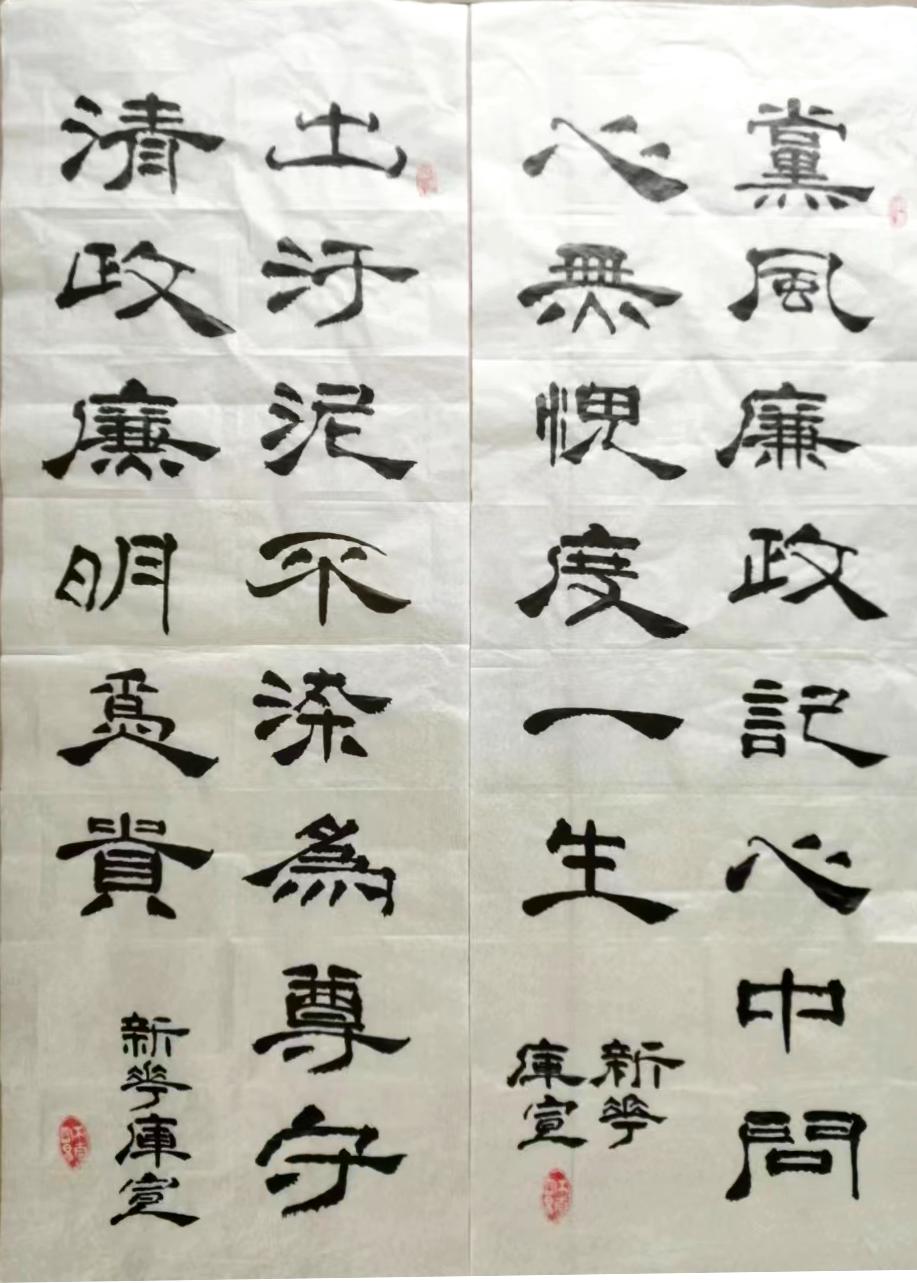 黨風廉政記心中問
心無愧度一生
新華
庫宣
出汙泥不染為尊守
清政廉明爲貴
新華庫宣